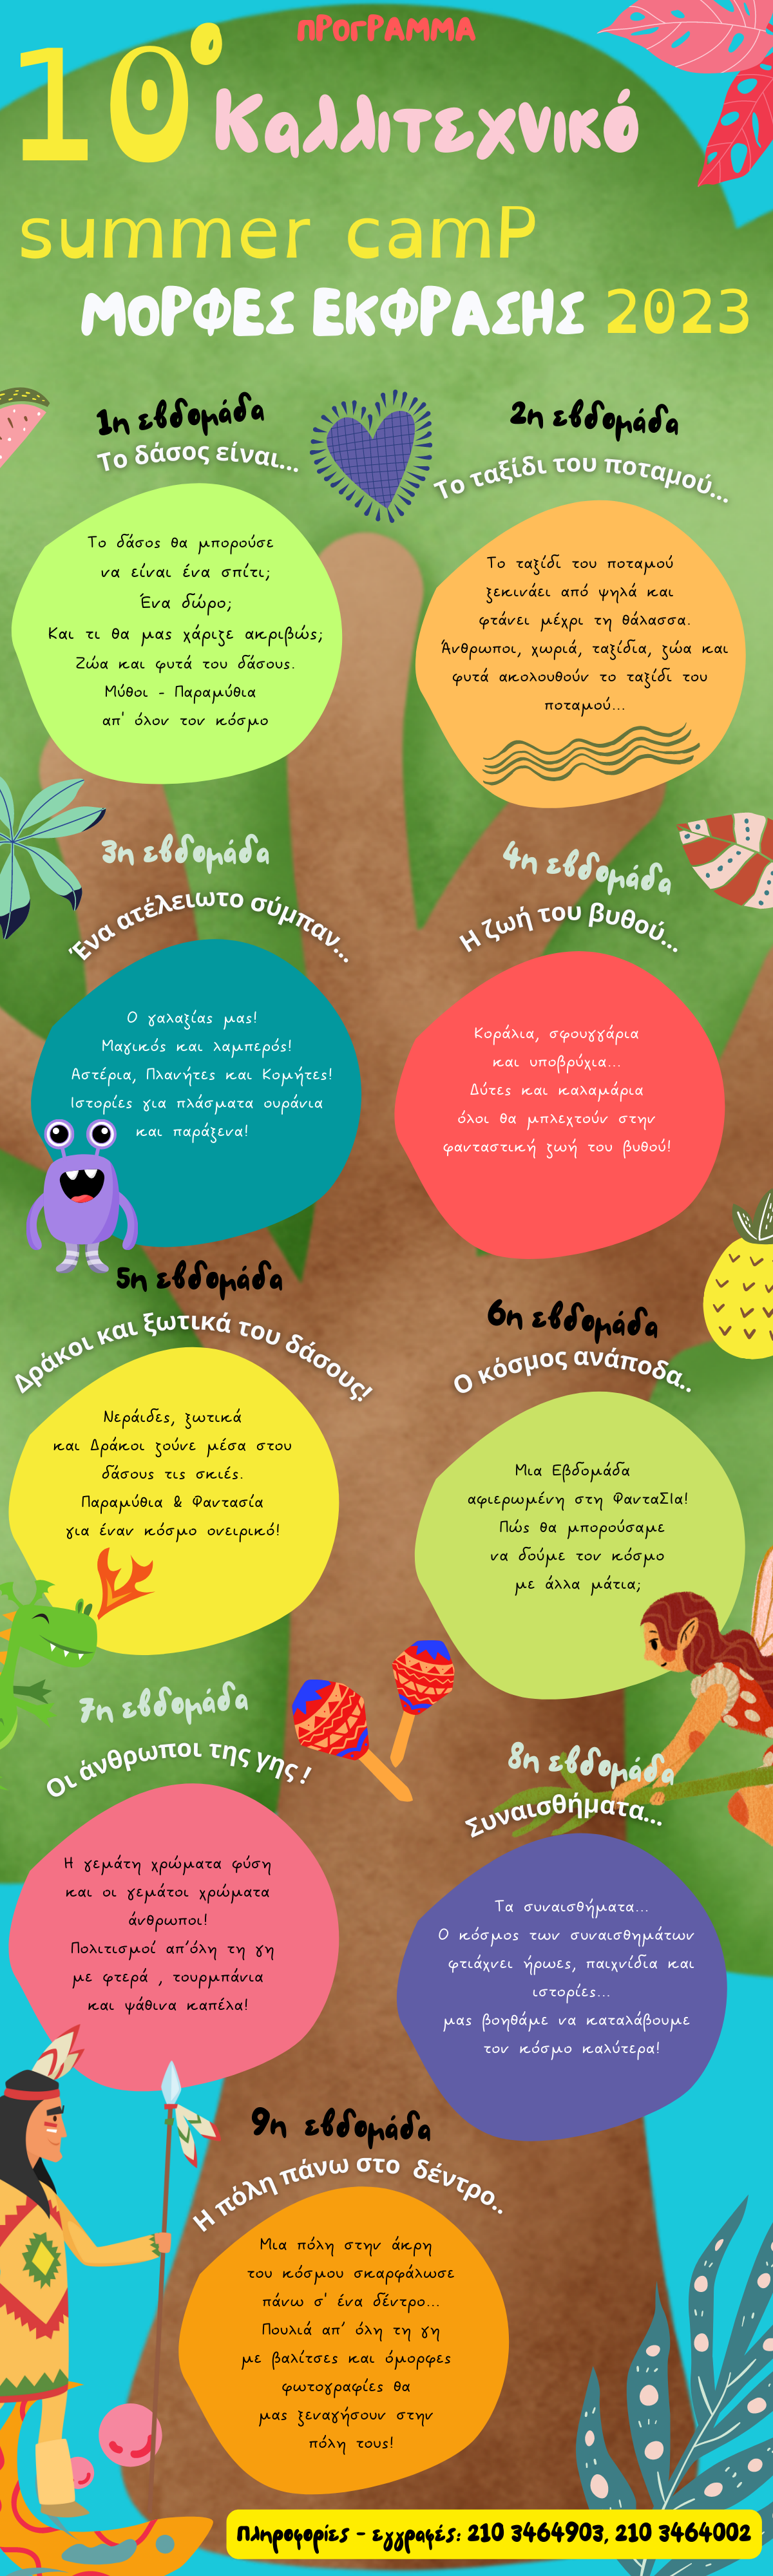 ΠΡΟΓΡΑΜΜΑ
10ο Καλλιτεχνικό
summer camP
ΜΟΡΦΕΣ ΕΚΦΡΑΣΗΣ 2023
1η εβδομάδα
Το δάσος είναι...
Το δάσος θα μπορούσε
να είναι ένα σπίτι;
Ένα δώρο;
Και τι θα μας χάριζε ακριβώς;
Ζώα και φυτά του δάσους.
Μύθοι - Παραμύθια
απ' όλον τον κόσμο
2η εβδομάδα
Το ταξίδι του ποταμού...
Το ταξίδι του ποταμού
ξεκινάει από ψηλά και
φτάνει μέχρι τη θάλασσα.
Άνθρωποι, χωριά, ταξίδια, ζώα και
φυτά ακολουθούν το ταξίδι του
ποταμού...
3η εβδομάδα
Ένα ατέλειωτο σύμπαν...
Ο γαλαξίας μας!
Μαγικός και λαμπερός!
Αστέρια, Πλανήτες και Κομήτες!
Ιστορίες για πλάσματα ουράνια
και παράξενα!
4η εβδομάδα
Η ζωή του βυθού...
Κοράλια, σφουγγάρια
και υποβρύχια...
Δύτες και καλαμάρια
όλοι θα μπλεχτούν στην
φανταστική ζωή του βυθού!
5η εβδομάδα
Δράκοι και ξωτικά του δάσους!
Νεράιδες, ξωτικά
και Δράκοι ζούνε μέσα στου
δάσους τις σκιές.
Παραμύθια & Φαντασία
για έναν κόσμο ονειρικό!
6η εβδομάδα
Ο κόσμος ανάποδα..
Μια Εβδομάδα
αφιερωμένη στη ΦανταΣΙα!
Πώς θα μπορούσαμε
να δούμε τον κόσμο
με άλλα μάτια;
7η εβδομάδα
Οι άνθρωποι της γης !
Η γεμάτη χρώματα φύση
και οι γεμάτοι χρώματα
άνθρωποι!
Πολιτισμοί απ'όλη τη γη
με φτερά , τουρμπάνια
και ψάθινα καπέλα!
8η εβδομάδα
Συναισθήματα...
Τα συναισθήματα...
Ο κόσμος των συναισθημάτων
φτιάχνει ήρωες, παιχνίδια και
ιστορίες...
μας βοηθάμε να καταλάβουμε
τον κόσμο καλύτερα!
9η εβδομάδα
Η πόλη πάνω στο δέντρο..
Μια πόλη στην άκρη
του κόσμου σκαρφάλωσε
πάνω σ' ένα δέντρο...
Πουλιά απ' όλη τη γη
με βαλίτσες και όμορφες
φωτογραφίες θα
μας ξεναγήσουν στην
πόλη τους!
Πληροφορίες - εγγραφές: 210 3464903, 210 3464002